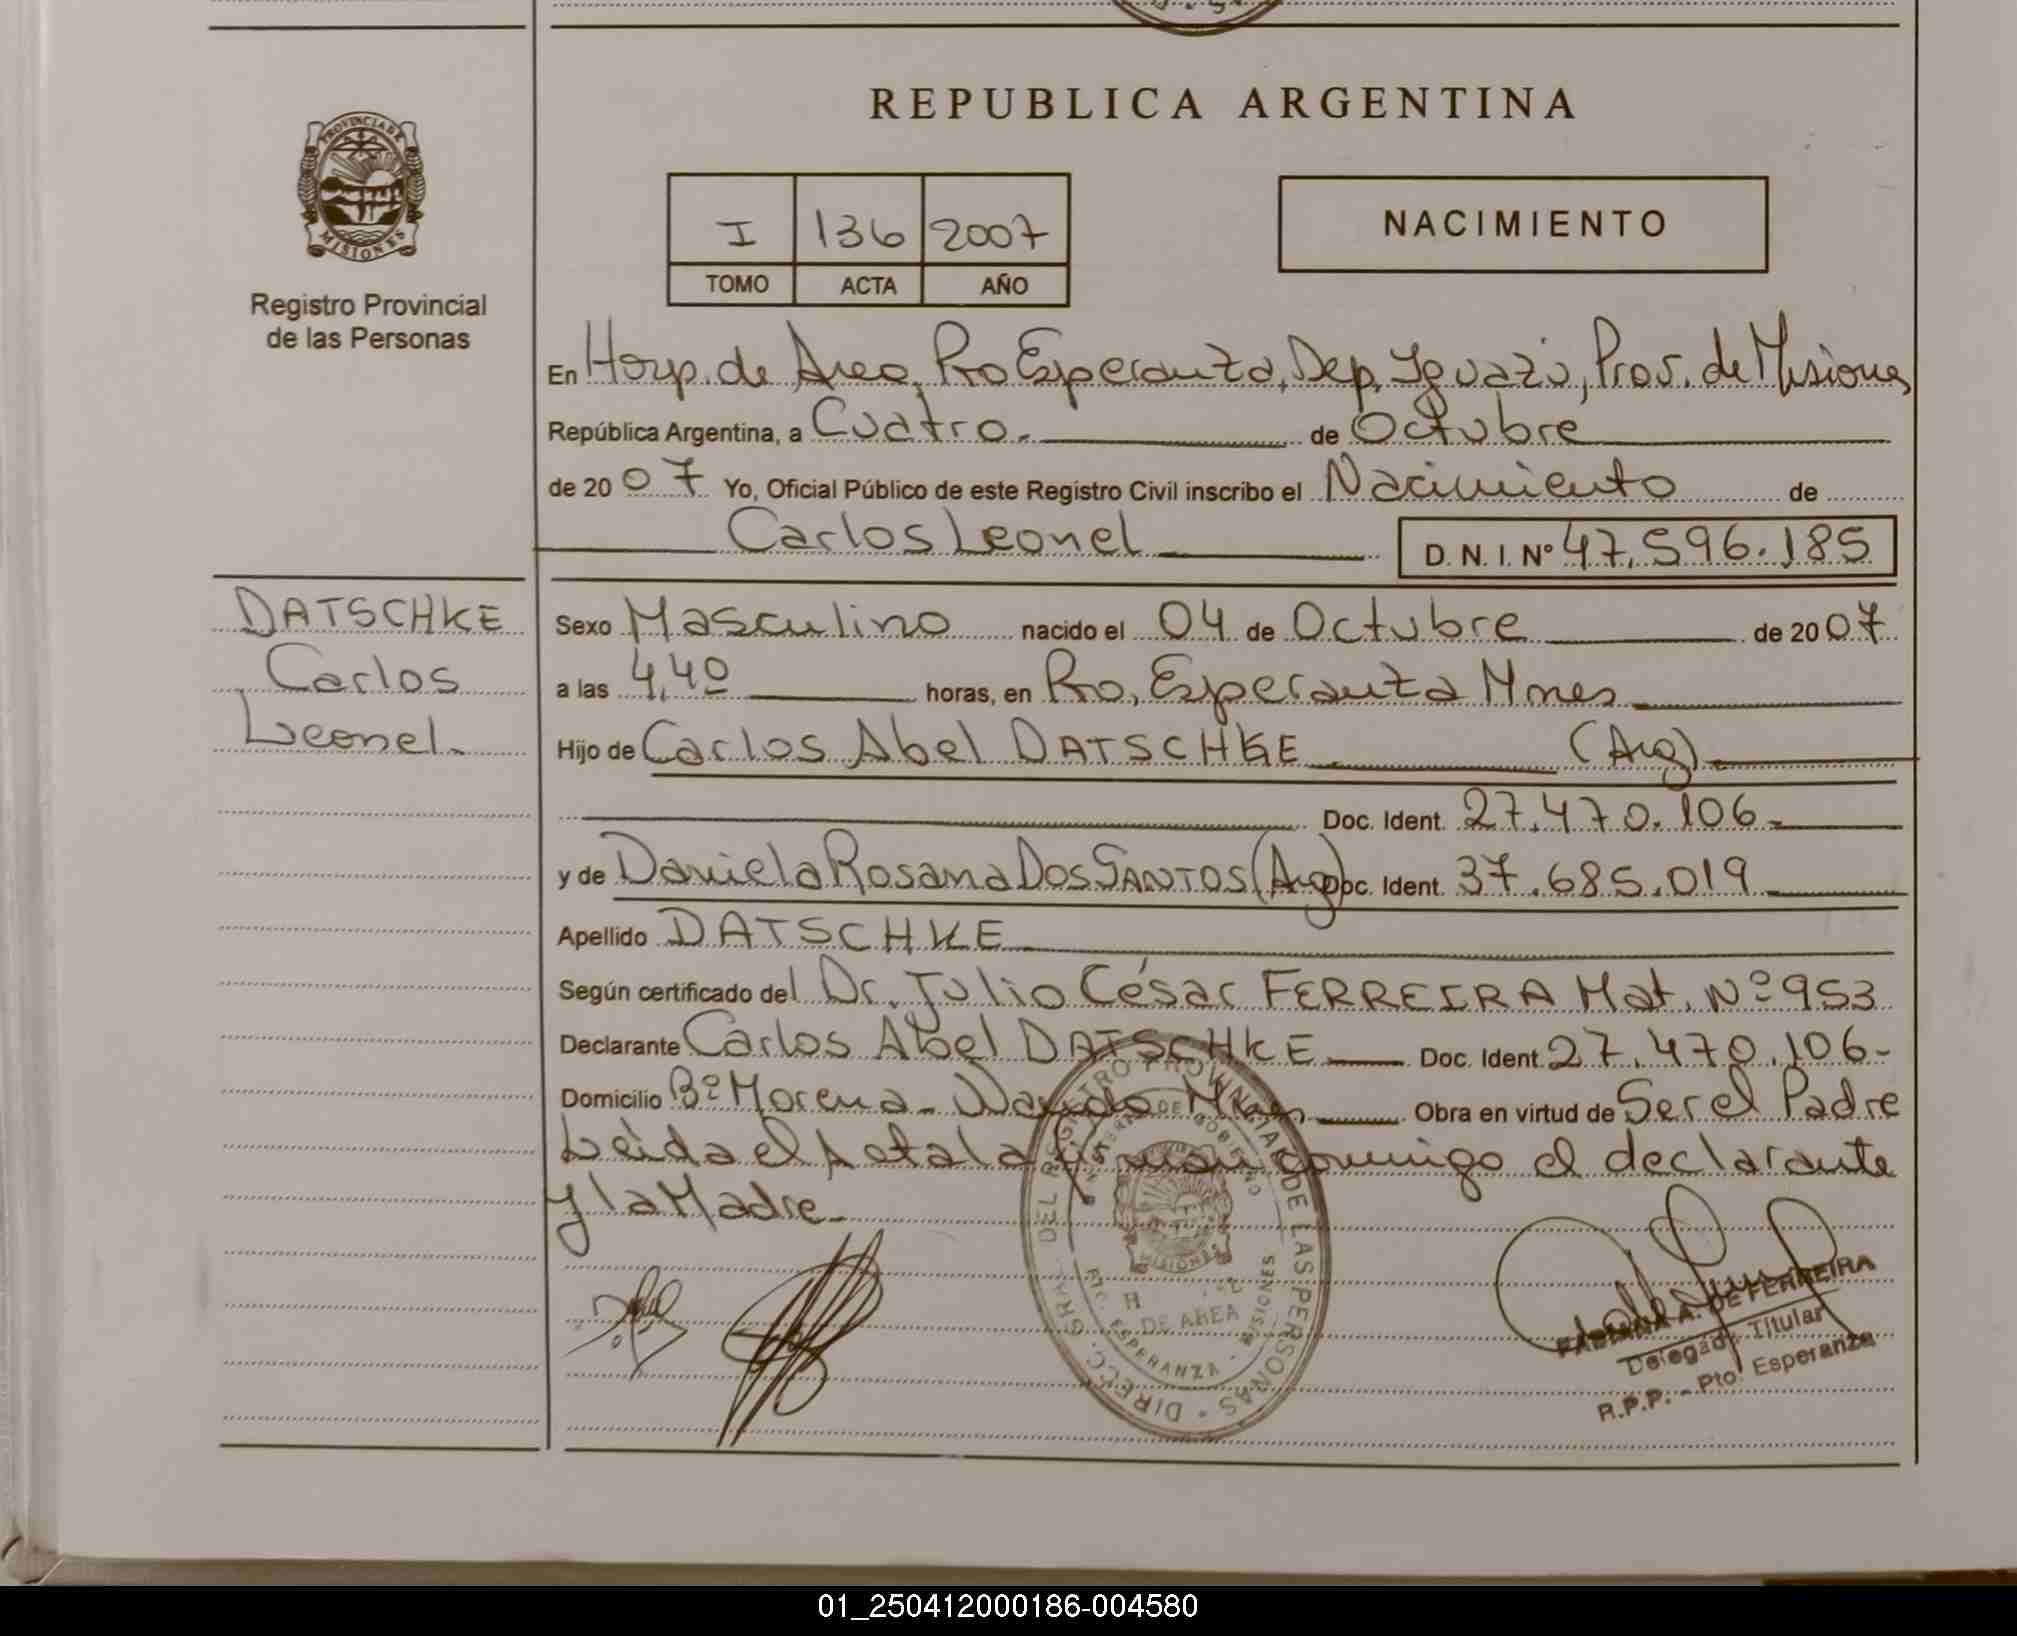 REPUBLICA ARGENTINA
PROVINCIA DE
MISIONES
Registro Provincial
de las Personas
I 136 2007
TOMO ACTA AÑO
NACIMIENTO
En Hosp. de Area, Pto Esperanza, Dep. Iguazú, Prov. de Misiones
República Argentina, a Cuatro. de Octubre
de 20 07 Yo, Oficial Público de este Registro Civil inscribo el Nacimiento de
Carlos Leonel D. N. I. Nº 47.596.185
DATSCHKE
Carlos
Leonel.
Sexo Masculino nacido el 04 de Octubre de 20 07
a las 4,40 horas, en Pto, Esperanza Mnes
Hijo de Carlos Abel DATSCHKE (Arg)
Doc. Ident. 27.470.106-
y de Daniela Rosana Dos SANTOS (Arg) Doc. Ident. 37.685.019
Apellido DATSCHKE
Según certificado del Dr. Julio César FERREIRA Mat. Nº 953
Declarante Carlos Abel DATSCHKE Doc. Ident. 27.470.106-
Domicilio Bº Morena - Wanda Mnes Obra en virtud de Ser el Padre
Leida el Acta la firman conmigo el declarante
y la Madre-
DIRECC. GRAL. DEL REGISTRO PROVINCIAL DE LAS PERSONAS
MINISTERIO DE GOBIERNO
MISIONES
DE AREA
PTO. ESPERANZA - MISIONES
FABIANA A. DE FERREIRA
Delegada Titular
R.P.P. - Pto. Esperanza
01_250412000186-004580